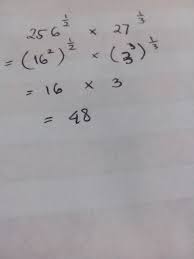 256^(1/2) × 27^(1/3)
= (16²)^(1/2) × (3³)^(1/3)
= 16 × 3
= 48